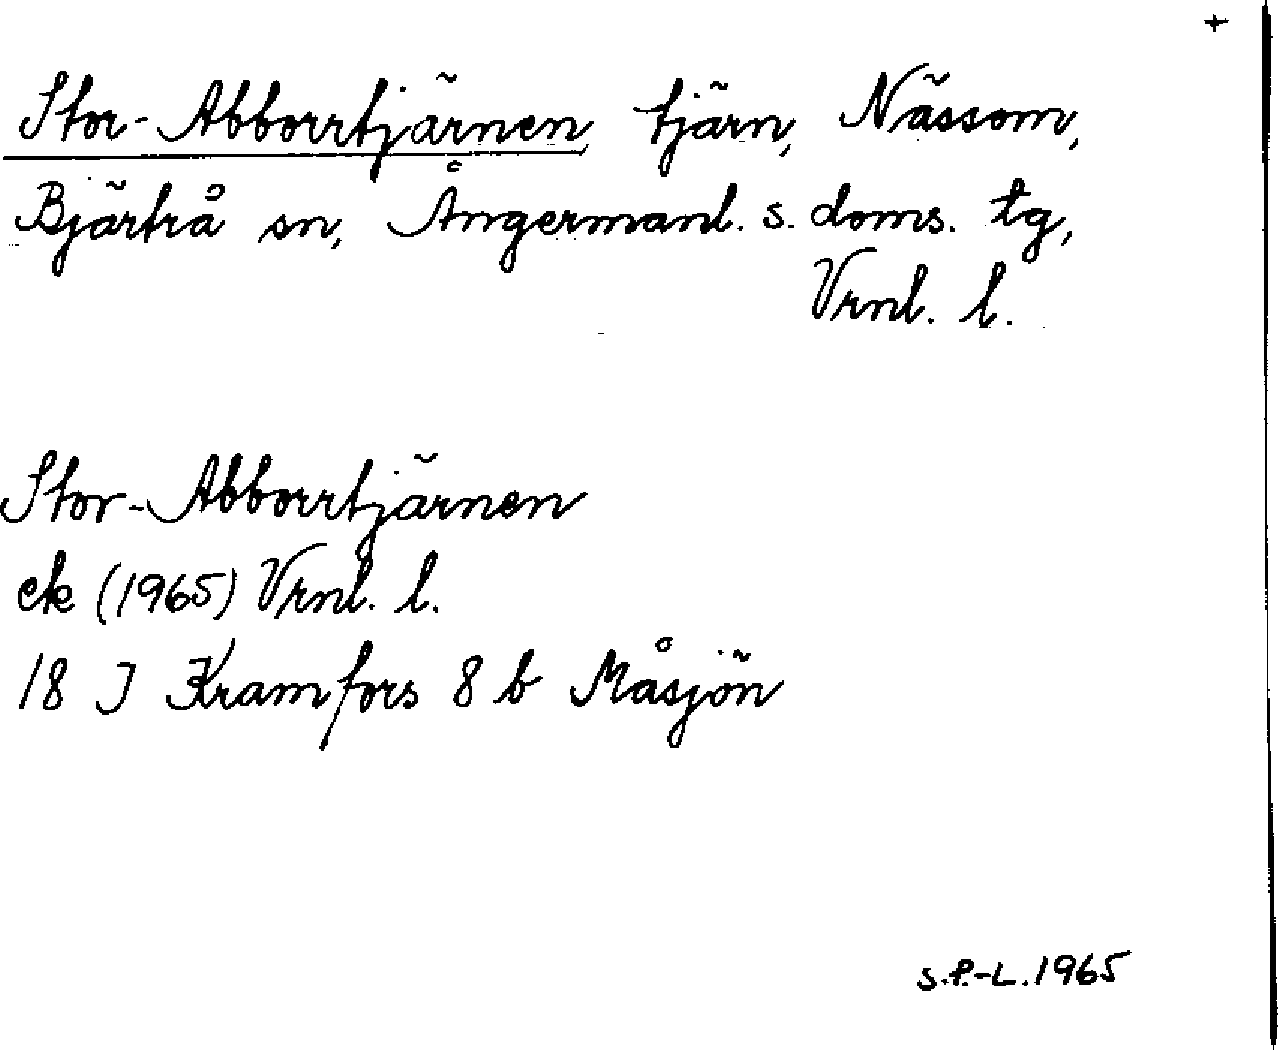 +
Stor-Abborrtjärnen, tjärn, Nässom,
Bjärtrå sn, Ångermanl. s. doms. tg,
Vrnl. l.
Stor-Abborrtjärnen
ek (1965) Vrnl. l.
18 J Kramfors 8 b Måsjön
S.P.-L. 1965